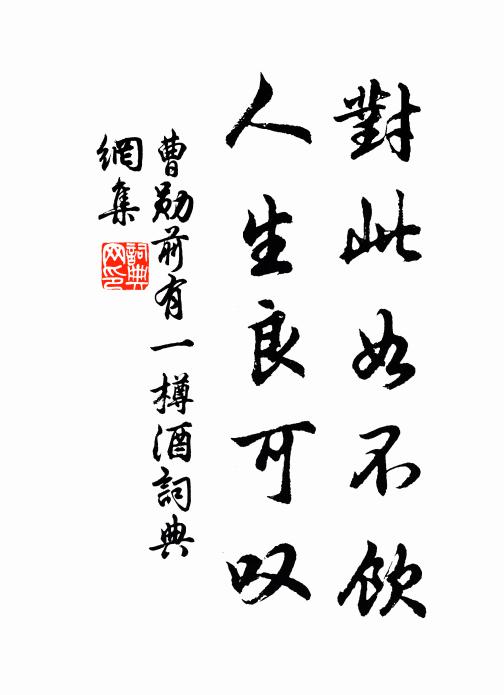 對此如不飲
人生良可叹
曹勛前有一樽酒詞典
網集
詞典网印